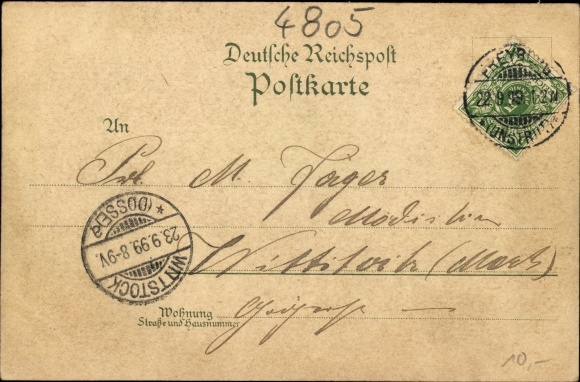 4805
Deutsche Reichspost
Postkarte
FREYBURG
22.9.99 1-2N
(UNSTRUT)
An
Frl. M. Jager
Modistin
Wittstock (Mark)
WITTSTOCK
23.9.99. 8-9V.
* (DOSSE) a
Wohnung
Straße und Hausnummer
10,-